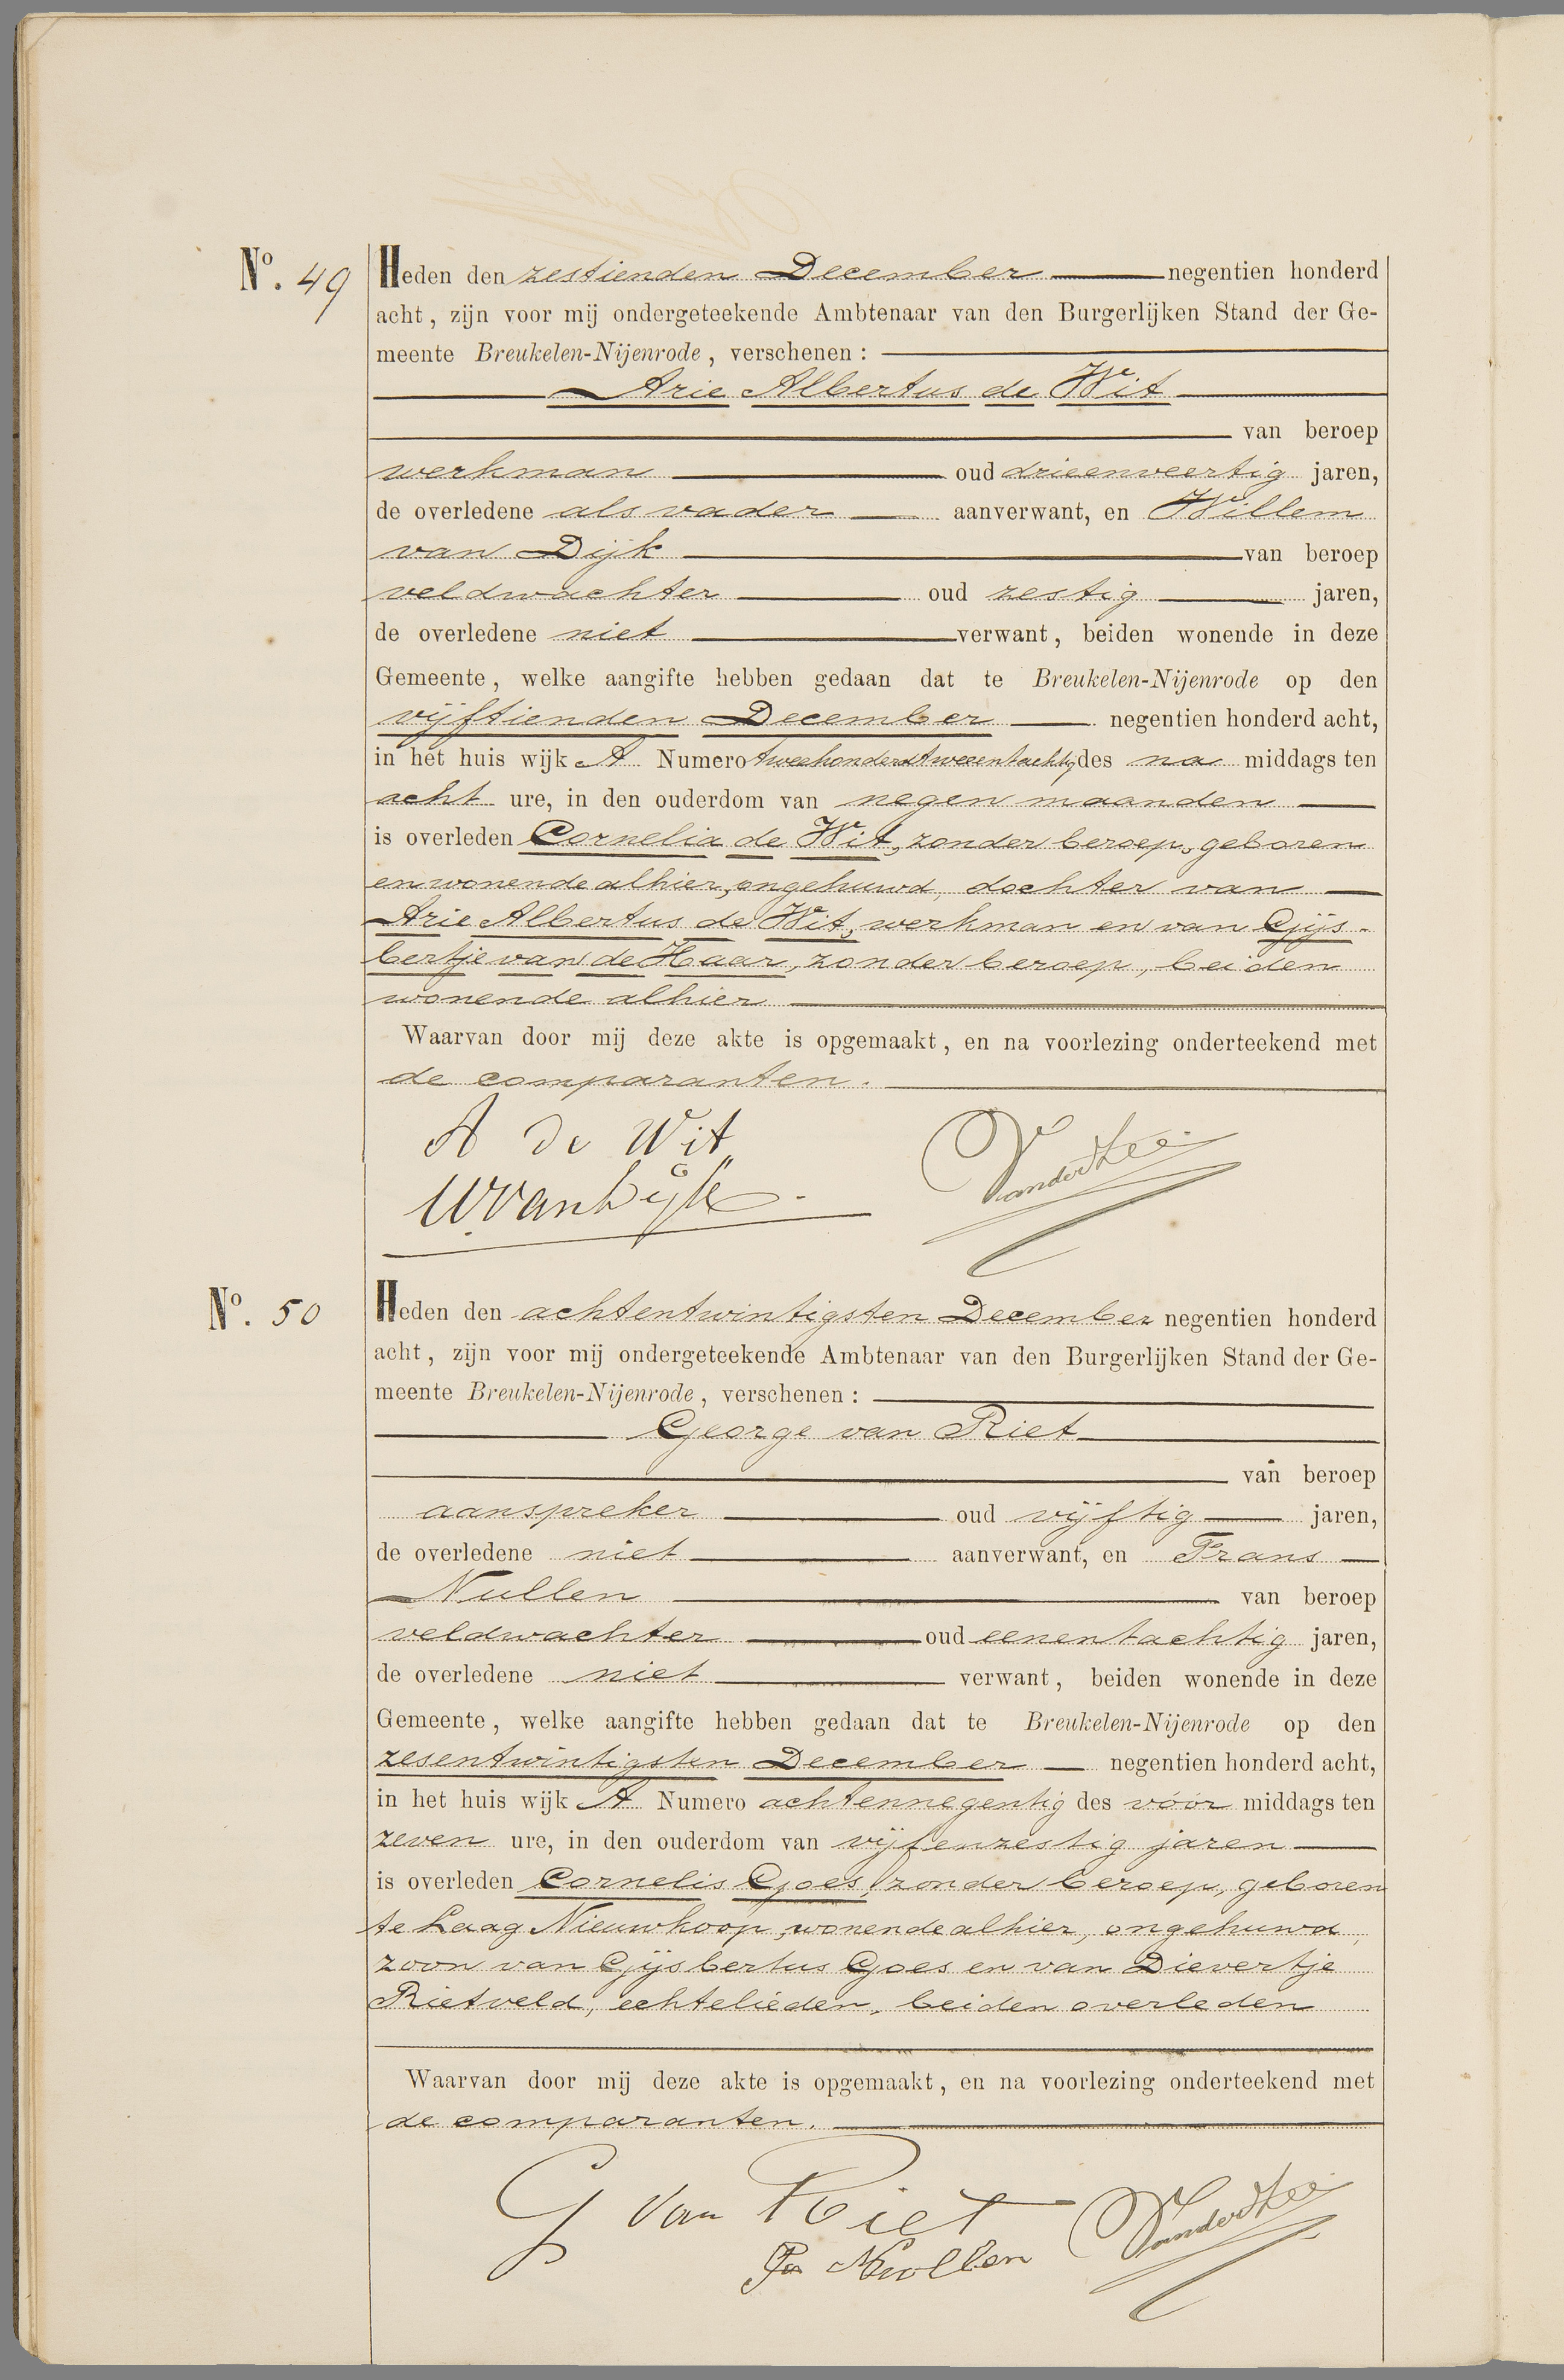 No. 49
Heden den zestienden December negentien honderd
acht, zijn voor mij ondergeteekende Ambtenaar van den Burgerlijken Stand der Ge-
meente Breukelen-Nijenrode, verschenen :
Arie Albertus de Wit
van beroep
werkman oud drieenveertig jaren,
de overledene als vader aanverwant, en Willem
van Dijk van beroep
veldwachter oud zestig jaren,
de overledene niet verwant, beiden wonende in deze
Gemeente, welke aangifte hebben gedaan dat te Breukelen-Nijenrode op den
vijftienden December negentien honderd acht,
in het huis wijk A Numero tweehonderdtweeentachtig des na middags ten
acht ure, in den ouderdom van negen maanden
is overleden Cornelia de Wit, zonder beroep, geboren
en wonende alhier, ongehuwd, dochter van
Arie Albertus de Wit, werkman en van Gijs-
bertje van de Haar, zonder beroep, beiden
wonende alhier
Waarvan door mij deze akte is opgemaakt, en na voorlezing onderteekend met
de comparanten.
A de Wit
W van Dijk
No. 50
Heden den achtentwintigsten December negentien honderd
acht, zijn voor mij ondergeteekende Ambtenaar van den Burgerlijken Stand der Ge-
meente Breukelen-Nijenrode, verschenen :
George van Riet
van beroep
aanspreker oud vijftig jaren,
de overledene niet aanverwant, en Frans
Nullen van beroep
veldwachter oud eenentachtig jaren,
de overledene niet verwant, beiden wonende in deze
Gemeente, welke aangifte hebben gedaan dat te Breukelen-Nijenrode op den
zesentwintigsten December negentien honderd acht,
in het huis wijk A Numero achtennegentig des vóór middags ten
zeven ure, in den ouderdom van vijfenzestig jaren
is overleden Cornelis Goes, zonder beroep, geboren
te Laag Nieuwkoop, wonende alhier, ongehuwd,
zoon van Gijsbertus Goes en van Dievertje
Rietveld, echtelieden, beiden overleden
Waarvan door mij deze akte is opgemaakt, en na voorlezing onderteekend met
de comparanten.
G van Riet